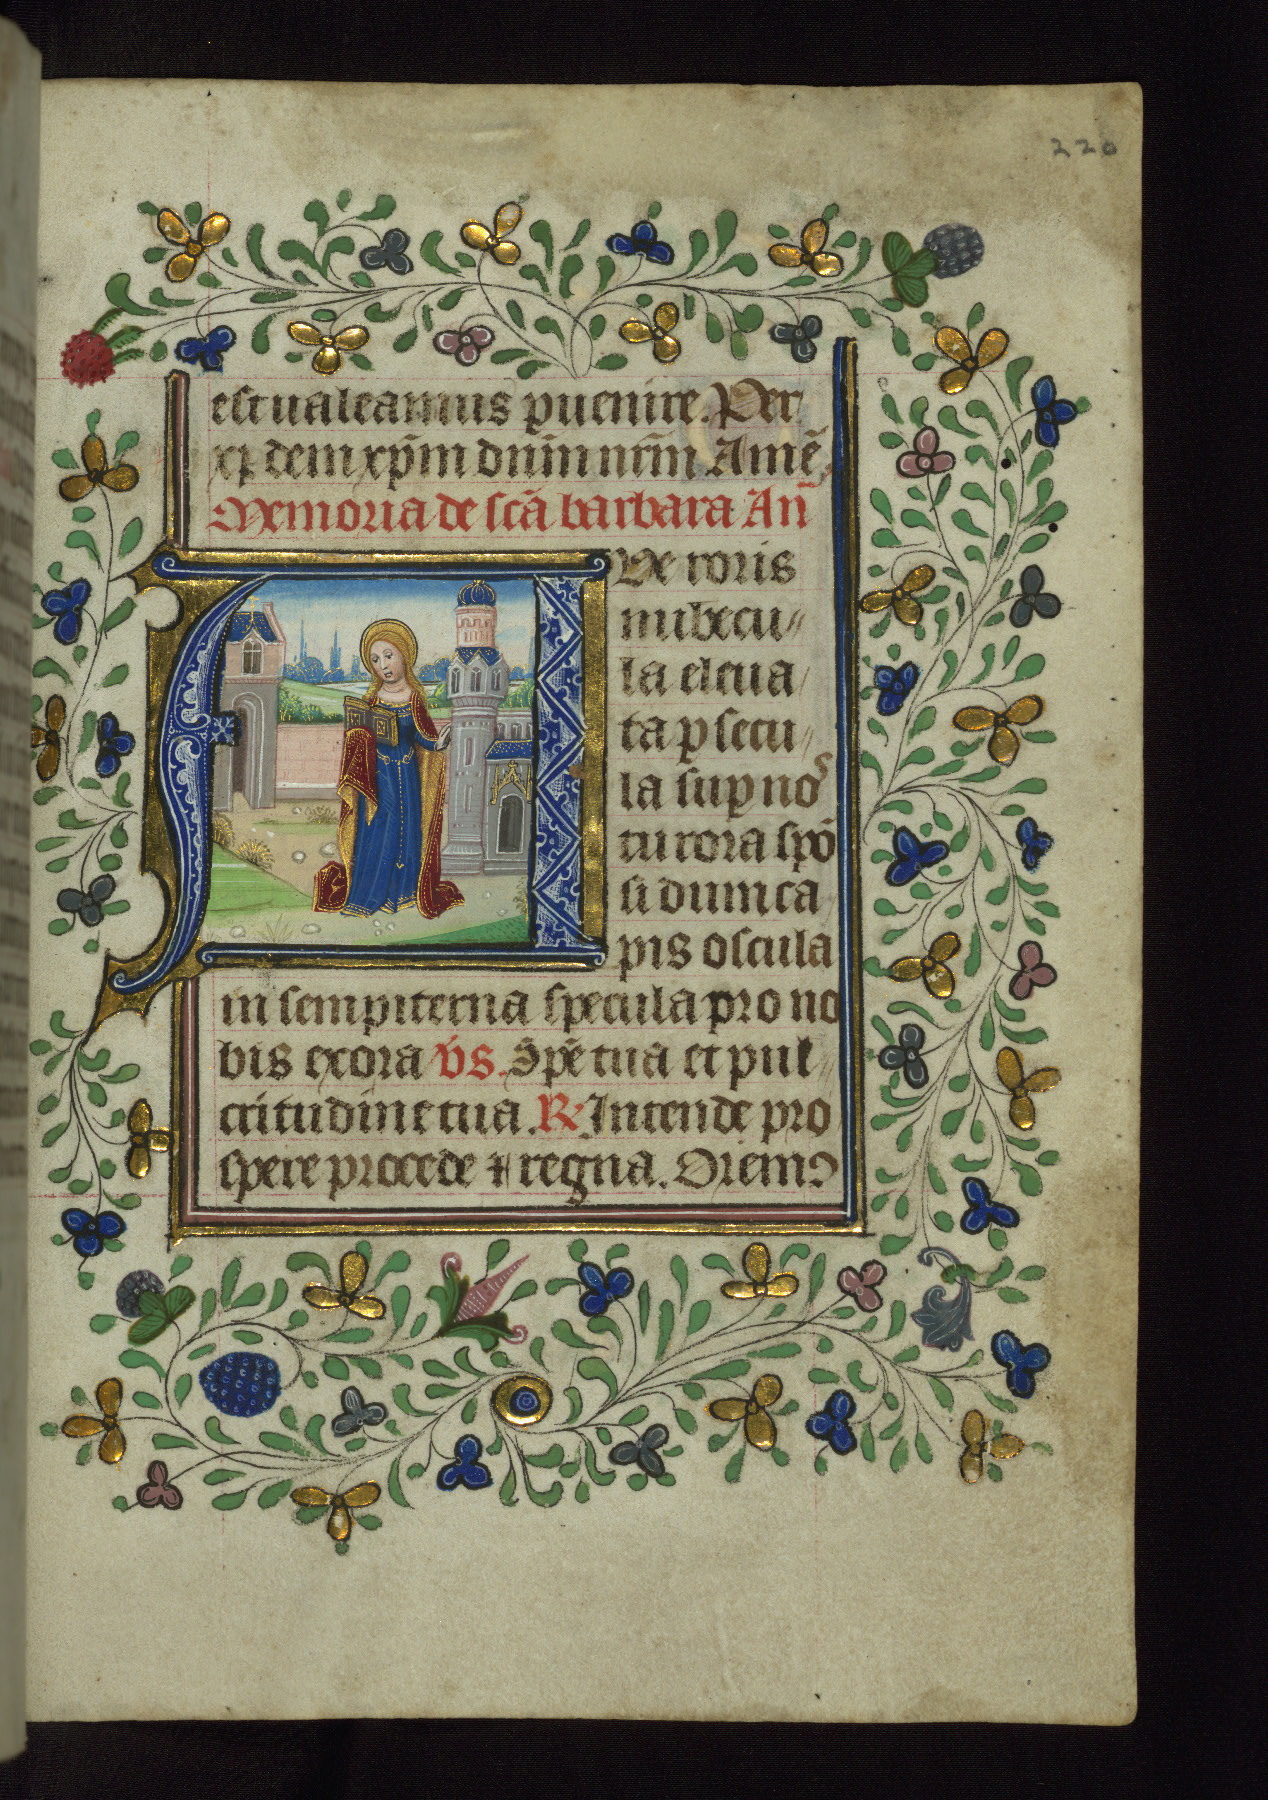 220
est ualeamus ꝑuenire. Per
xp̄ dem xp̄m dn̄m nr̄m Amē.
Memoria de sc̄a barbara An̄
Ue roris
nubecu〃
la eleua/
ta ꝑ secu/
la suꝑ nos
tu rora spō
si dum ca
pis oscula
in sempiterna specula pro no
bis exora v̄s. Spē tua et pul〃
critudine tua. R̷ Intende pro
spere procede ⁊ regna. Oremꝯ